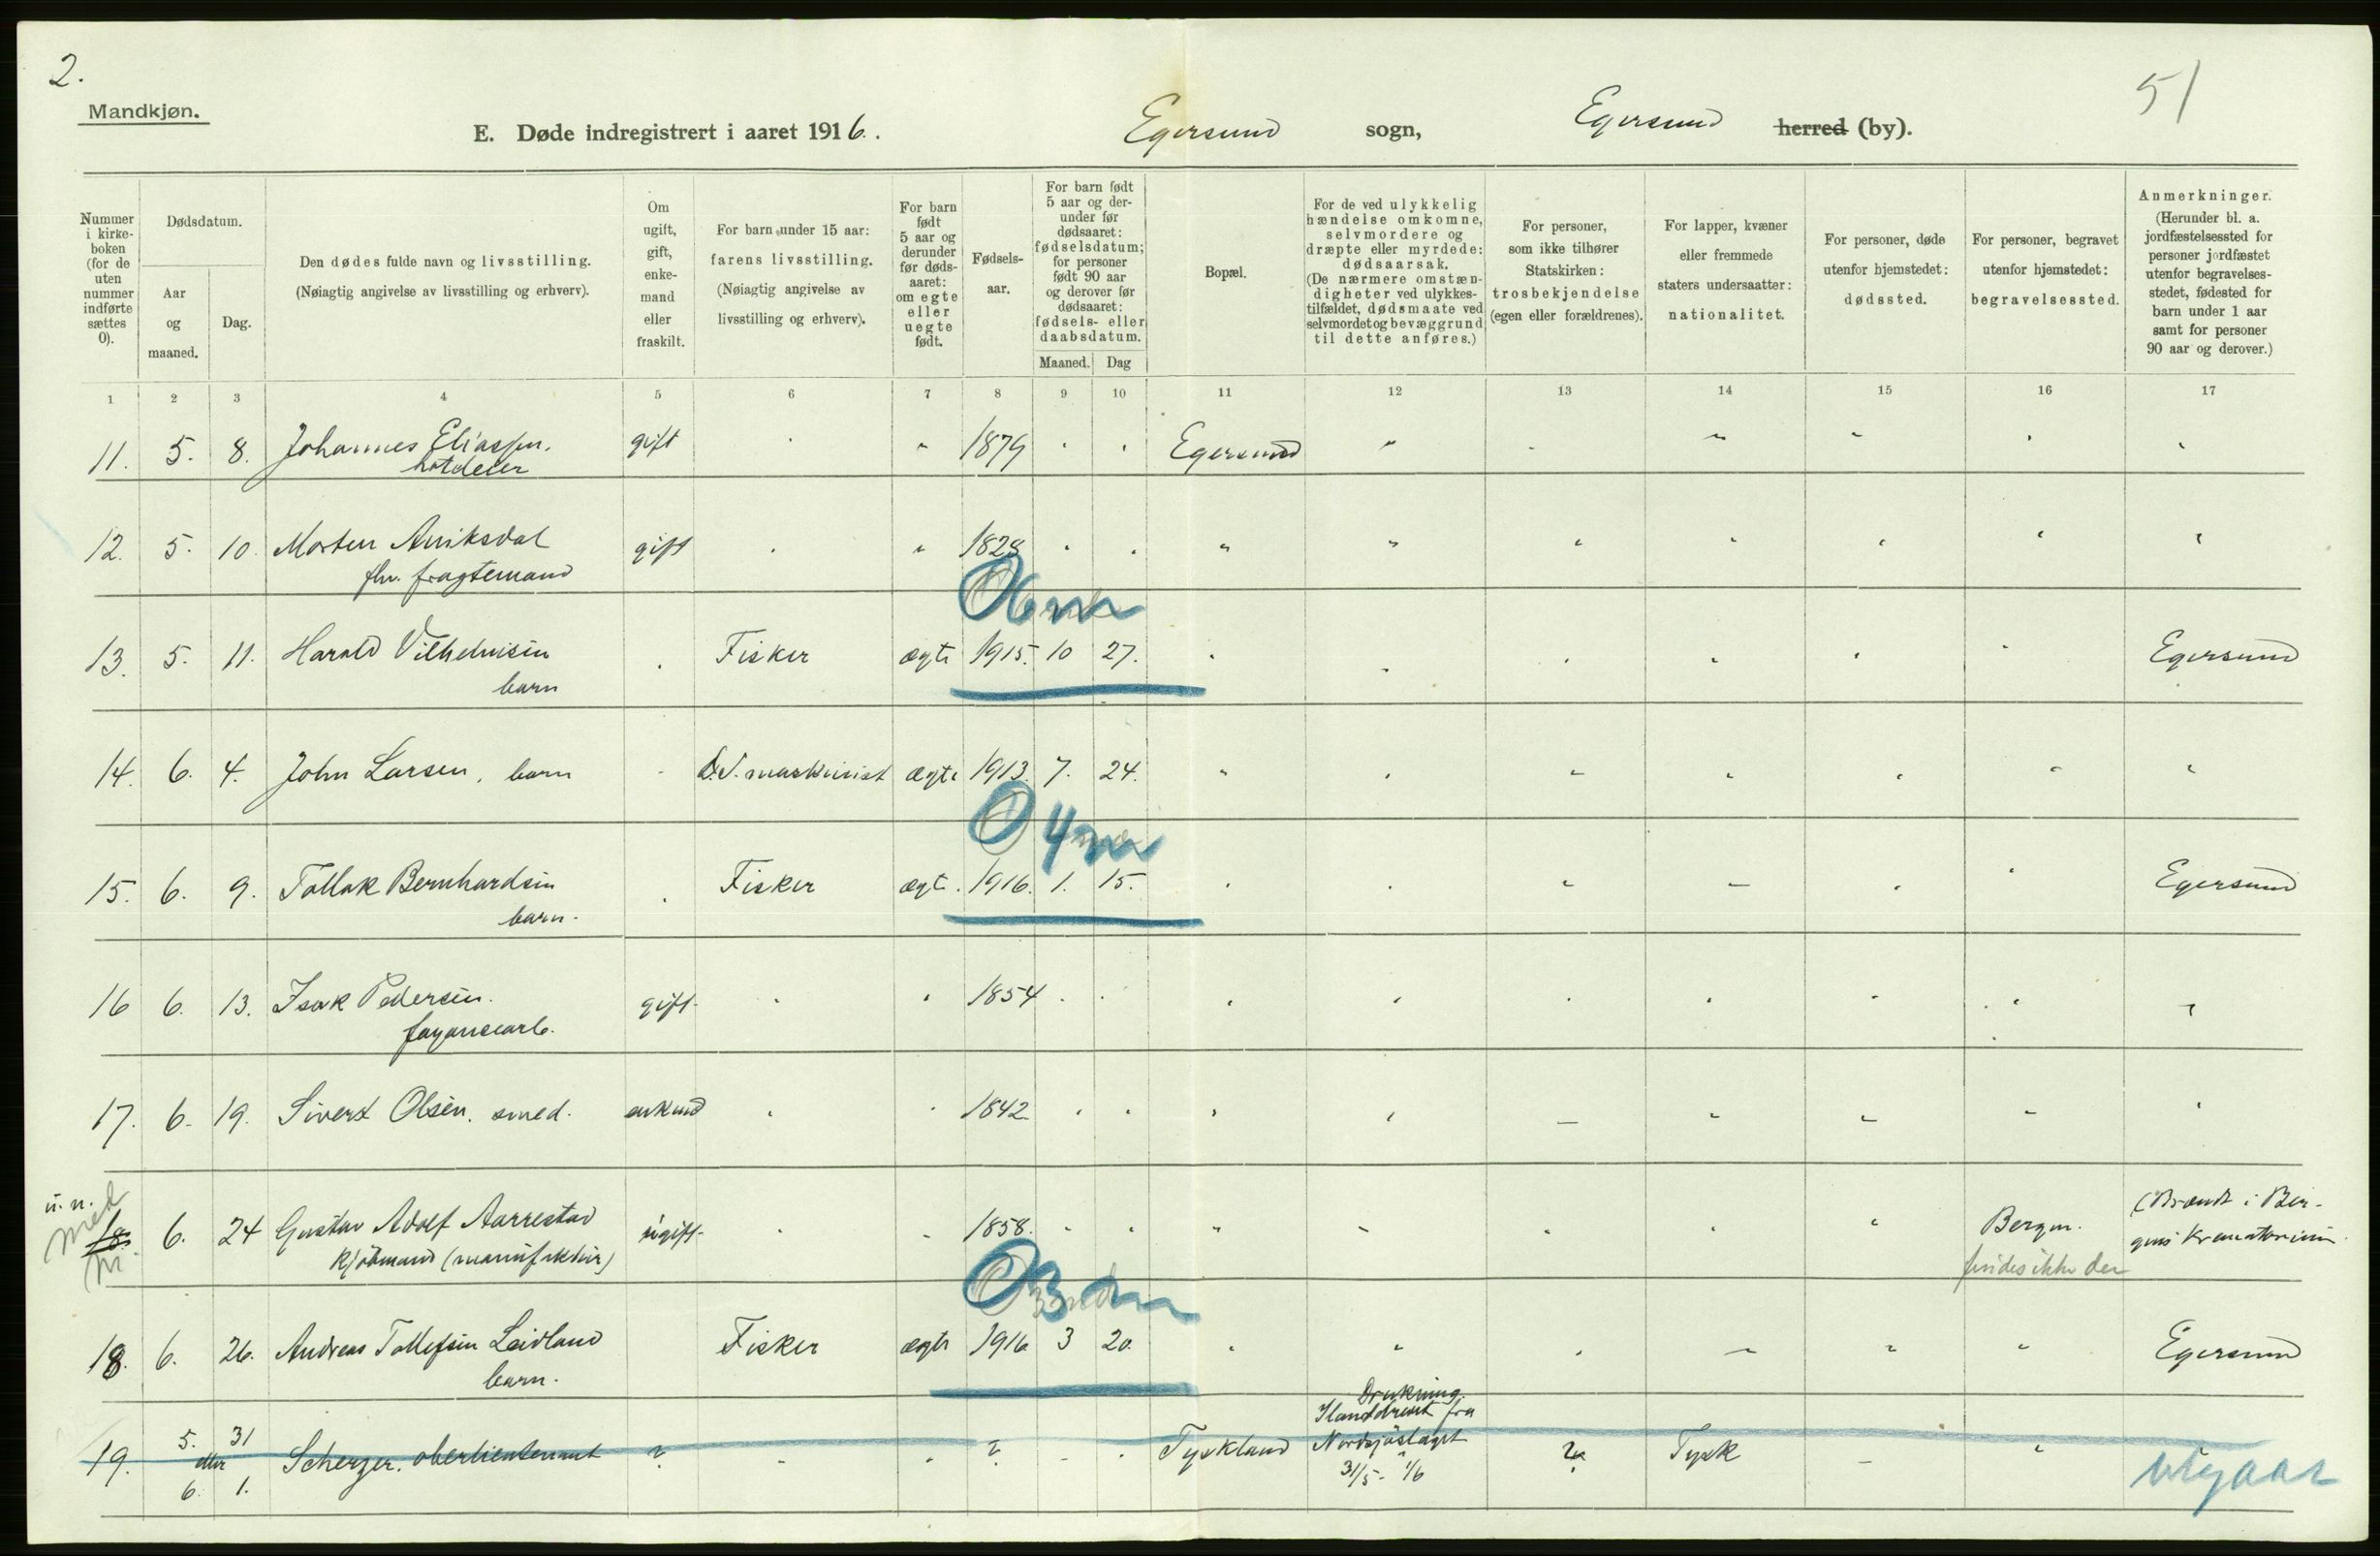 2.
51
Mandkjøn.
E. Døde indregistrert i aaret 1916. Egersund sogn, Egersund herred (by).
Nummer i kirke-boken (for de uten nummer indførte sættes 0).
Dødsdatum.
Aar og maaned.
Dag.
Den dødes fulde navn og livsstilling.
(Nøiagtig angivelse av livsstilling og erhverv).
Om ugift, gift, enke-mand eller fraskilt.
For barn under 15 aar: farens livsstilling. (Nøiagtig angivelse av livsstilling og erhverv).
For barn født 5 aar og derunder før døds-aaret: om egte eller uegte født.
Fødsels-aar.
For barn født 5 aar og der-under før dødsaaret: fødselsdatum; for personer født 90 aar og derover før dødsaaret: fødsels- eller daabsdatum.
Maaned. Dag
Bopæl.
For de ved ulykkelig hændelse omkomne, selvmordere og dræpte eller myrdede: dødsaarsak. (De nærmere omstæn-digheter ved ulykkes-tilfældet, dødsmaate ved selvmordet og bevæggrund til dette anføres.)
For personer, som ikke tilhører Statskirken: trosbekjendelse (egen eller forældrenes).
For lapper, kvæner eller fremmede staters undersaatter: nationalitet.
For personer, døde utenfor hjemstedet: dødssted.
For personer, begravet utenfor hjemstedet: begravelsessted.
Anmerkninger. (Herunder bl. a. jordfæstelsessted for personer jordfæstet utenfor begravelses-stedet, fødested for barn under 1 aar samt for personer 90 aar og derover.)
1 2 3 4 5 6 7 8 9 10 11 12 13 14 15 16 17
11. 5. 8. Johannes Eliassen. gift " 1879 Egersund "
12. 5. 10. Morten Aniksdal gift " 1828 "
fhv. fragtemand
O 6 m
13. 5. 11. Harald Vilhelmsen Fisker ægte 1915. 10 27. Egersund
barn
14. 6. 4. John Larsen, barn D.S. maskinist ægte 1913. 7. 24. "
O 4 m
15. 6. 9. Tollak Bernhardsen Fisker ægt. 1916. 1. 15. Egersund
barn.
16 6. 13. Isak Pedersen. gift. 1854
fayancearb.
17. 6. 19. Sivert Olsen. smed. enkmd 1842
u. n.
med
18. 6. 24 Gustav Adolf Aarrestad ugift 1858. " Bergen. (Brændt i Ber-
kjøbmand (manufaktur) gens krematorium
findes ikke der
O 3 m
18. 6. 26. Andreas Tollefsen Leidland Fisker ægte 1916 3 20. Egersund
barn.
19. 5. 31 eller 6. 1. Scherzer. oberlieutenant ? ? Tyskland Drukning. Ilanddrevet fra Nordsjöslaget 31/5 - 1/6 ? Tysk
utgaar